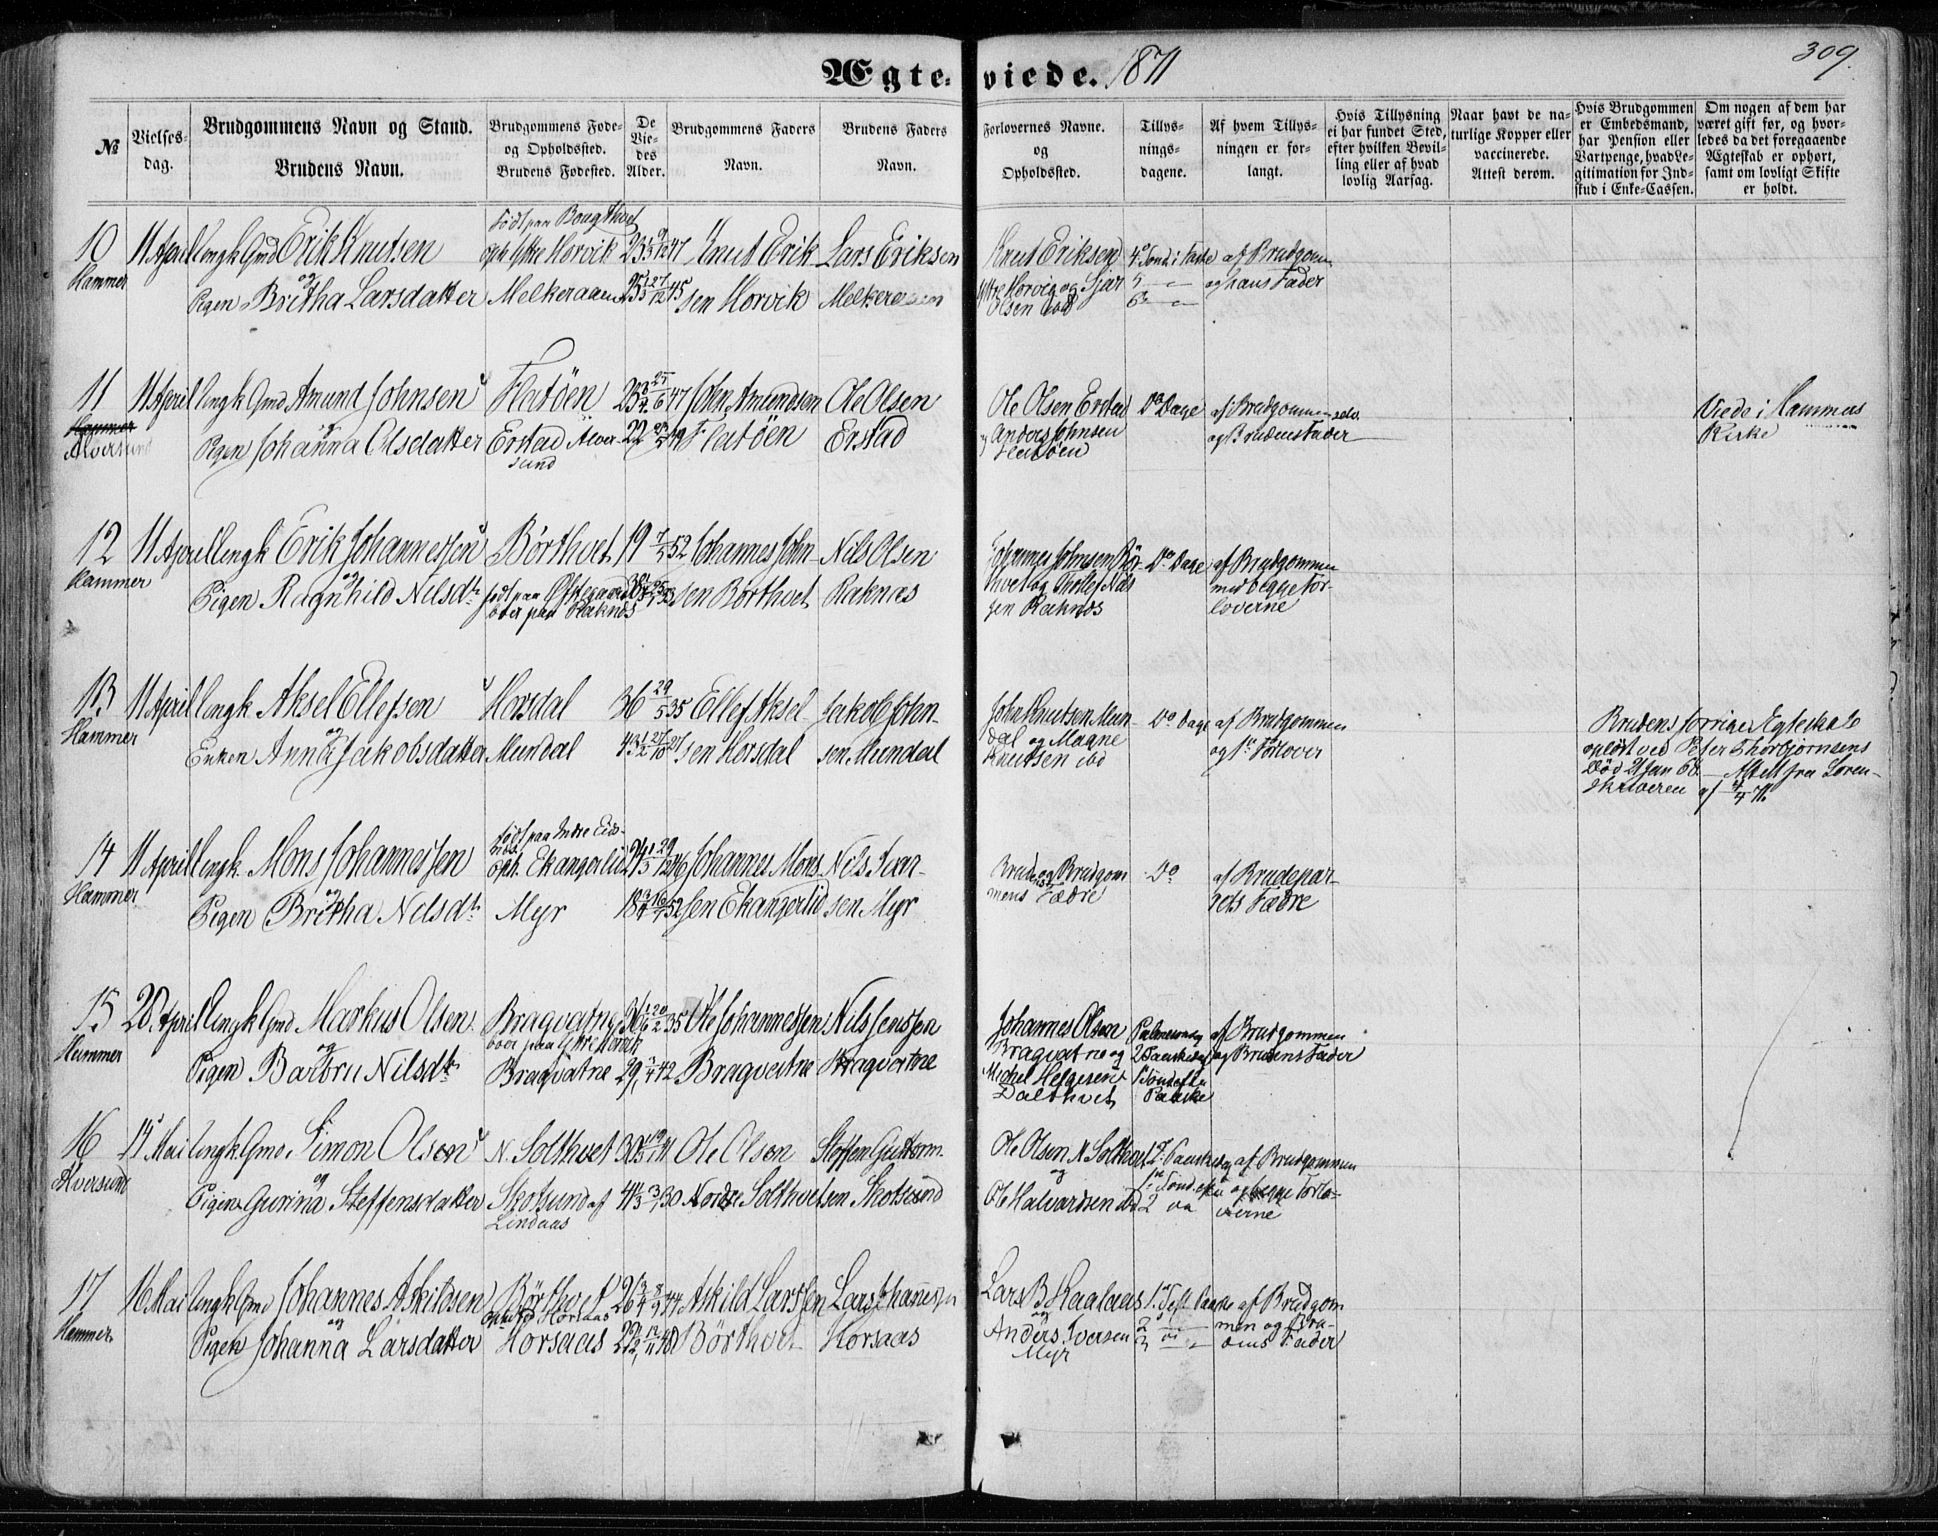 Ægteviede. 1871
309.
№
Vielsesdag.
Brudgommens Navn og Stand.
Brudens Navn.
Brudgommens Fødeog Opholdssted.
Brudens Fødested.
De Viedes Alder.
Brudgommens Faders Navn.
Brudens Faders Navn.
Forlovernes Navne. og Opholdssted.
Tillysningsdagene.
Af hvem Tillysningen er forlangt.
Hvis Tillysning ei har fundet Sted, efter hvilken Bevilling eller af hvad lovlig Aarsag.
Naar havt de naturlige Kopper eller vaccinerede. Attest derom.
Hvis Brudgommen er Embedsmand, har Pension eller Vartpenge, hvad Legitimation for Indskud i Enke-Cassen.
Om nogen af dem har været gift før, og hvorledes da det foregaaende Ægteskab er ophørt, samt om lovligt Skifte er holdt.
10 11 April Ungk Gmd Erik Knutsen
Hammer
og
Pigen Britha Larsdatter
Født paa Bougthvet
oph Ytre Horvik
Melkeraaen
Knut Erik
sen Horvik
Lars Eriksen
Melkeraaen
Knut Eriksen
Ytre Horvig og Sjur
Olsen ibd
4de Sønd i Faste
5 — "
6te — "
af Brudgom
og hans Fader
11 11 April Ungk Gmd Amund Johnsen
Alversund
Pigen Johanna Olsdatter
Flatöen
Erstad Alver
sund
John Amundsen
Flatöen
Ole Olsen
Erstad
Ole Olsen Erstad
og Anders Johnsen
Flatöen
Do Dage
af Brudgommen selv
og Brudens Fader
Viede i Hammers
Kirke
12 11 April Ungk Erik Johannessen
Hammer
og
Pigen Ragnhild Nilsdtr
Börthvet
født paa
boer paa Raknes
19 7/5 52
Johannes John
sen Börthvet
Nils Olsen
Raknæs
Johannes Johnsen Bör
thvet og Nils
sen Raknæs
Do Dage
af Brudgommen
med begge For
loverne
13 11 April Ungk. Aksel Ellefsen
Hammer
og
Enken Anna Jakobsdatter
Horsdal
Mundal
36 29/5 35
Ellef Aksel
sen Horsdal
Jakob John
sen Mundal
John Knutsen Mun
dal og Magne
Knutsen ibd
Do Dage
af Brudgommen
og 1e Forlover
Brudens forrige Egteskab
opløst ved Peter Thorbjørnsens
Død 21 Jun 68. Attest fra Soren
skriveren af 4/4 71.
14 11 April Ungk. Mons Johannessen
Hammer
og
Pigen Britha Nilsdtr
født paa Indre Eids
oph. Ekangerlid
Myr
Johannes Mons
sen Ekangerlid
Nils Ivar
sen Myr
Brudens og Brudgom
mens Fædre
Do
af Brudepar
rets Fædre
15 28. April Ungk Gmd Markus Olsen
Hammer
og
Pigen Barbru Nilsdtr
Bragvatne
boer paa Ytre Horvik
Bragvatne
Ole Johannessen
Bragvatne
Nils Jenssen
Bragvatne
Johannes Olsen
Bragvatne og
Michel Helgesen
Dalthvet
Palmesøndag
2 Paaskedag
1 Sønd efter
Paaske
af Brudgommen
og Brudens Fader
16 15 Mai Ungk Gmd. Simon Olsen
Alversund
og
Pigen Gurina Steffensdatter
N. Solthvet
Skotsund af
Lindaas
Ole Olsen
Nordre Solthvet
Steffen Guttorm
sen Skotsund
Ole Olsen N Solthvet
og
Ole Halvardsen ibd
2. Paaskedag
1ste Sønd efter
2 da
af Brudgommen
og begge Forlo
verne
17 16 Mai Ungk Gmd Johannes Askildsen
Hammer
og
Pigen Johanna Larsdatter
Börthvet
opholder Horsaas
Horsaas
Askild Larssen
Börthvet
Lars Johannessen
Horsaas
Lars B Haalaas
og
Anders Iversen
Myr
1ste Sø eft Paaske
2 —
3 — "
af Brudgom
men og Bru
dens Fader